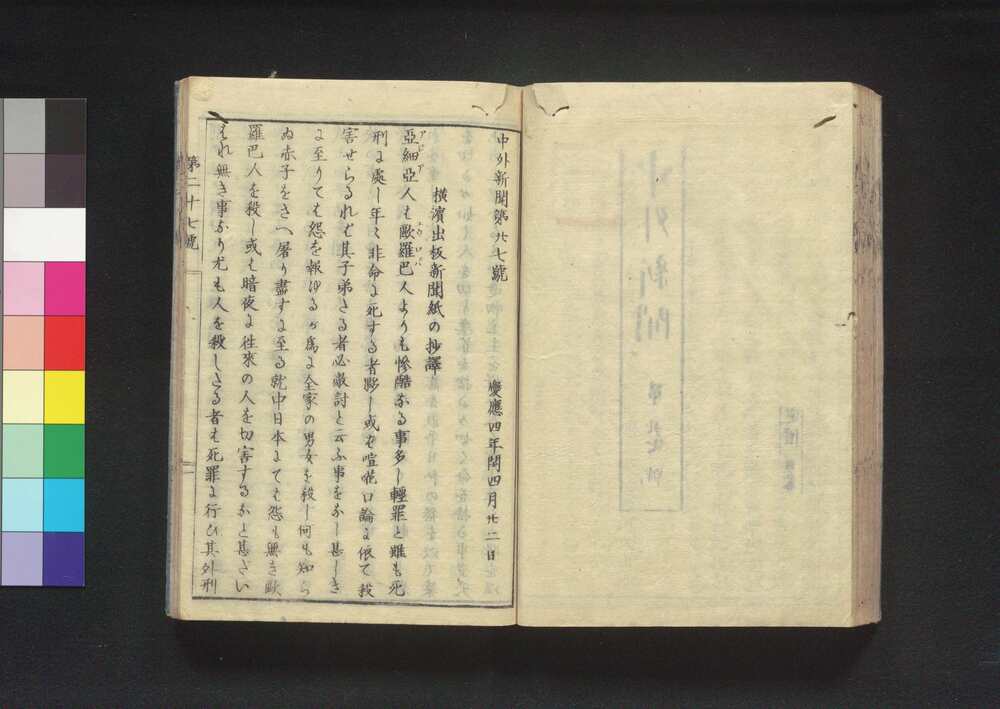 中外新聞第廿七號　慶應四年閏四月廿二日
橫濱出板新聞紙の抄譯
亞細亞人も歐羅巴人よりも慘酷なる事多し輕罪と雖も死
刑に處し年々非命に死する者夥し或は喧嘩口論に依て殺
害せらるれば其子弟たる者必敵討と云ふ事をなし甚しき
に至りては怨を報ゆるが爲に全家の男女を殺し何も知ら
ぬ赤子をさへ屠り盡すに至る就中日本にても怨も無き歐
羅巴人を殺し或は暗夜に往來の人を切害するなど甚だい
はれ無き事なり尤も人を殺したる者は死罪に行ひ其外刑
第二十七號